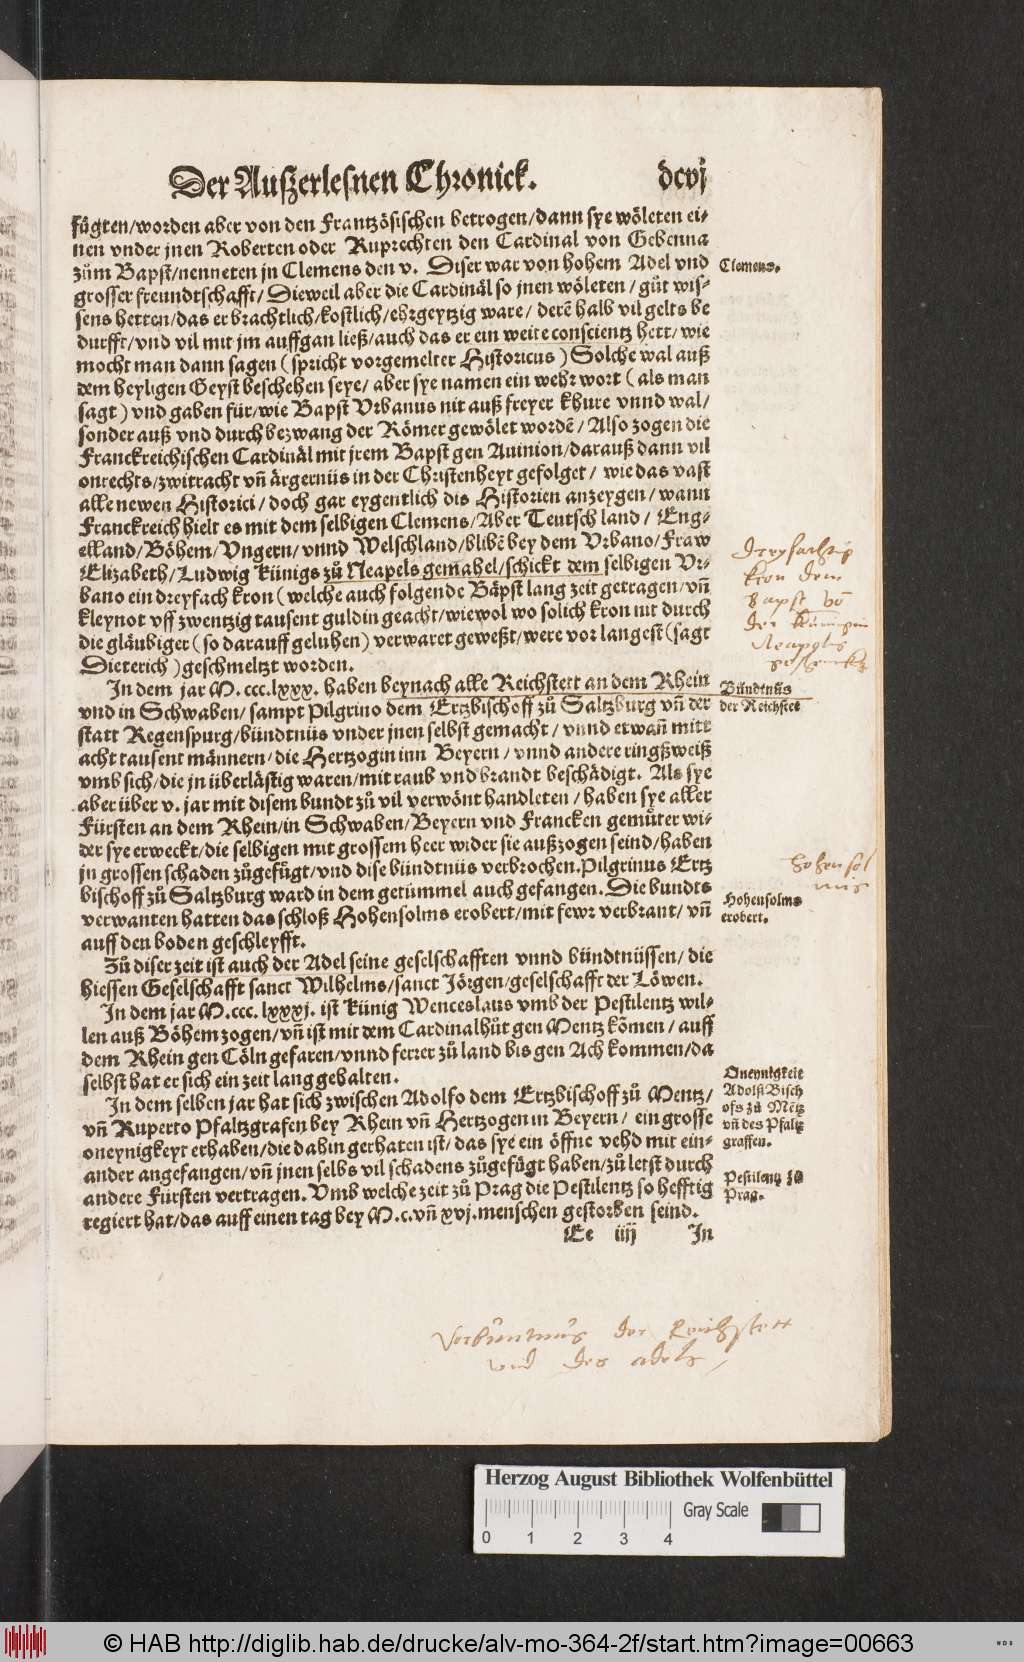 Der Außerlesnen Chronick. dcvj
fůgten/worden aber von den Frantzösischen betrogen/dann sye wöleten ei-
nen vnder jnen Roberten oder Ruprechten den Cardinal von Gebenna
zům Bapst/nenneten jn Clemens den v. Diser war von hohem Adel vnd
grosser freundtschafft/Dieweil aber die Cardinäl so jnen wöleten/gůt wis-
sens hetten/das er brachtlich/kostlich/ehrgeytzig ware/derē halb vil gelts be
durfft/vnd vil mit jm auffgan ließ/auch das er ein weite conscientz hett/wie
mocht man dann sagen (spricht vorgemelter Historicus) Solche wal auß
dem heyligen Geyst beschehen seye/aber sye namen ein wehr wort (als man
sagt) vnd gaben für/wie Bapst Vrbanus nit auß freyer khure vnnd wal/
sonder auß vnd durch bezwang der Römer gewölet wordē/Also zogen die
Franckreichischen Cardinäl mit jrem Bapst gen Auinion/darauß dann vil
onrechts/zwitracht vñ ärgernüs in der Christenheyt gefolget/wie das vast
alle newen Historici/doch gar eygentlich dis Historien anzeygen/wann
Franckreich hielt es mit dem selbigen Clemens/Aber Teutsch land/Eng-
elland/Böhem/Vngern/vnnd Welschland/blibē bey dem Vrbano/Fraw
Elizabeth/Ludwig Künigs zů Neapels gemahel/schickt dem selbigen Vr-
bano ein dreyfach kron (welche auch folgende Bäpst lang zeit getragen/vñ
kleynot vff zwentzig tausent guldin geacht/wiewol wo solich kron nit durch
die gläubiger (so darauff geluhen) verwaret geweßt/were vor langest (sagt
Dieterich) geschmeltzt worden.
In dem jar M.ccc.lxxx. haben beynach alle Reichstett an dem Rhein
vnd in Schwaben/sampt Pilgrino dem Ertzbischoff zů Saltzburg vñ der
statt Regenspurg/bündtnüs vnder jnen selbst gemacht/vnnd etwañ mitt
acht tausent männern/die Hertzogin inn Beyern/vnnd andere ringßweiß
vmb sich/die in überlästig waren/mit raub vnd brandt beschädigt. Als sye
aber über v. jar mit disem bundt zů vil verwönt handleten/haben sye aller
Fürsten an dem Rhein/in Schwaben/Beyern vnd Francken gemůter wi-
der sye erweckt/die selbigen mit grossem heer wider sie außzogen seind/haben
jn grossen schaden zůgefůgt/vnd dise bündtnüs verbrochen. Pilgrinus Ertz
bischoff zů Saltzburg ward in dem getümmel auch gefangen. Die bundts
verwanten hatten das schloß Hohensolms erobert/mit fewr verbrant/vñ
auff den boden geschleyfft.
Zů diser zeit ist auch der Adel seine geselschafften vnnd bündtnüssen/die
hiessen Geselschafft sanct Wilhelms/sanct Jörgen/geselschafft der Löwen.
In dem jar M.ccc.lxxxj. ist Künig Wenceslaus vmb der Pestilentz wil-
len auß Böhem zogen/vñ ist mit dem Cardinalhůt gen Mentz kõmen/auff
dem Rhein gen Cöln gefaren/vnnd ferrer zů land bis gen Ach kommen/da
selbst hat er sich ein zeit lang gehalten.
In dem selben jar hat sich zwischen Adolfo dem Ertzbischoff zů Mentz/
vñ Ruperto Pfaltzgrafen bey Rhein vñ Hertzogen in Beyern/ein grosse
oneynigkeyt erhaben/die dahin gerhaten ist/das sye ein öffne vehd mit ein-
ander angefangen/vñ jnen selbs vil schadens zůgefůgt haben/zů letst durch
andere Fürsten vertragen. Vmb welche zeit zů Prag die Pestilentz so hefftig
regiert hat/das auff einen tag bey M.c.vñ xvj. menschen gestorben seind.
Ee iiij In
Clemens.
dreyfachtig
kron dem
Bapst võ
der Künigin
Neapolis
geschenckt
Bündtnüs
der Reichstet
hohensol
mis
Hohensolms
erobert.
Oneynigkeit
Adolfi Bisch
ofs zů Mētz
vñ des Pfaltz
graffen.
Pestilentz zů
Prag.
Verbüntnus der Reichstett
vnd des adels
Herzog August Bibliothek Wolfenbüttel
0 1 2 3 4
Gray Scale
© HAB http://diglib.hab.de/drucke/alv-mo-364-2f/start.htm?image=00663